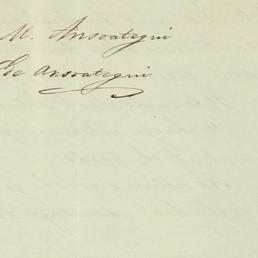 M. Ansoategui
De Ansoategui